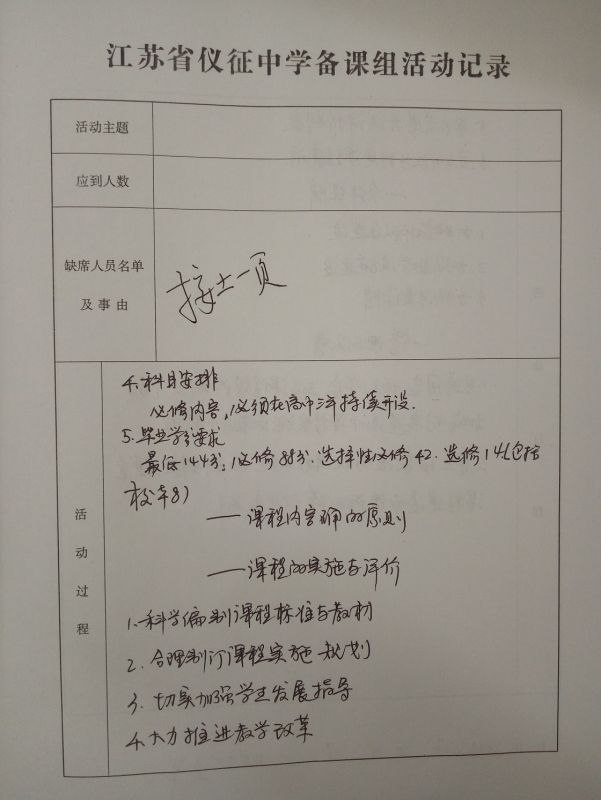 江苏省仪征中学备课组活动记录
活动主题
应到人数
缺席人员名单
及事由
接上一页
活动过程
4.科目安排
必修内容,必须在高中三年持续开设.
5.毕业学分要求
最低144分,必修88分.选择性必修42.选修14(包括
校本8)
——课程内容确的原则
——课程的实施与评价
1.科学编制课程标准与教材
2.合理制订课程实施规划
3.切实加强学生发展指导
4.大力推进教学改革